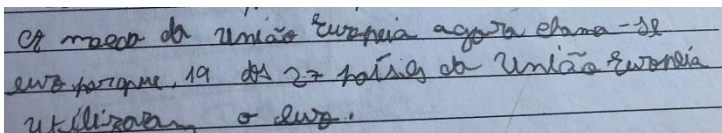 A moeda da União Europeia agora chama-se
euro porque, 19 dos 27 países da União Europeia
utilizavam o euro.